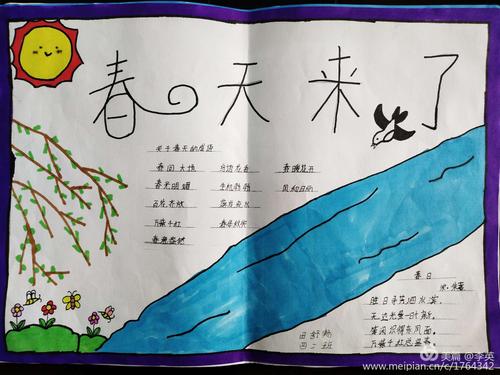 春天来了
关于春天的成语
春回大地 鸟语花香 春暖花开
春光明媚 生机勃勃 风和日丽
百花齐放
万紫千红
春意盎然
春日
宋·朱熹
胜日寻芳泗水滨
无边光景一时新
等闲识得东风面
万紫千红总是春
田舒畅
四二班
美篇 @李英
www.meipian.cn/c/1764342